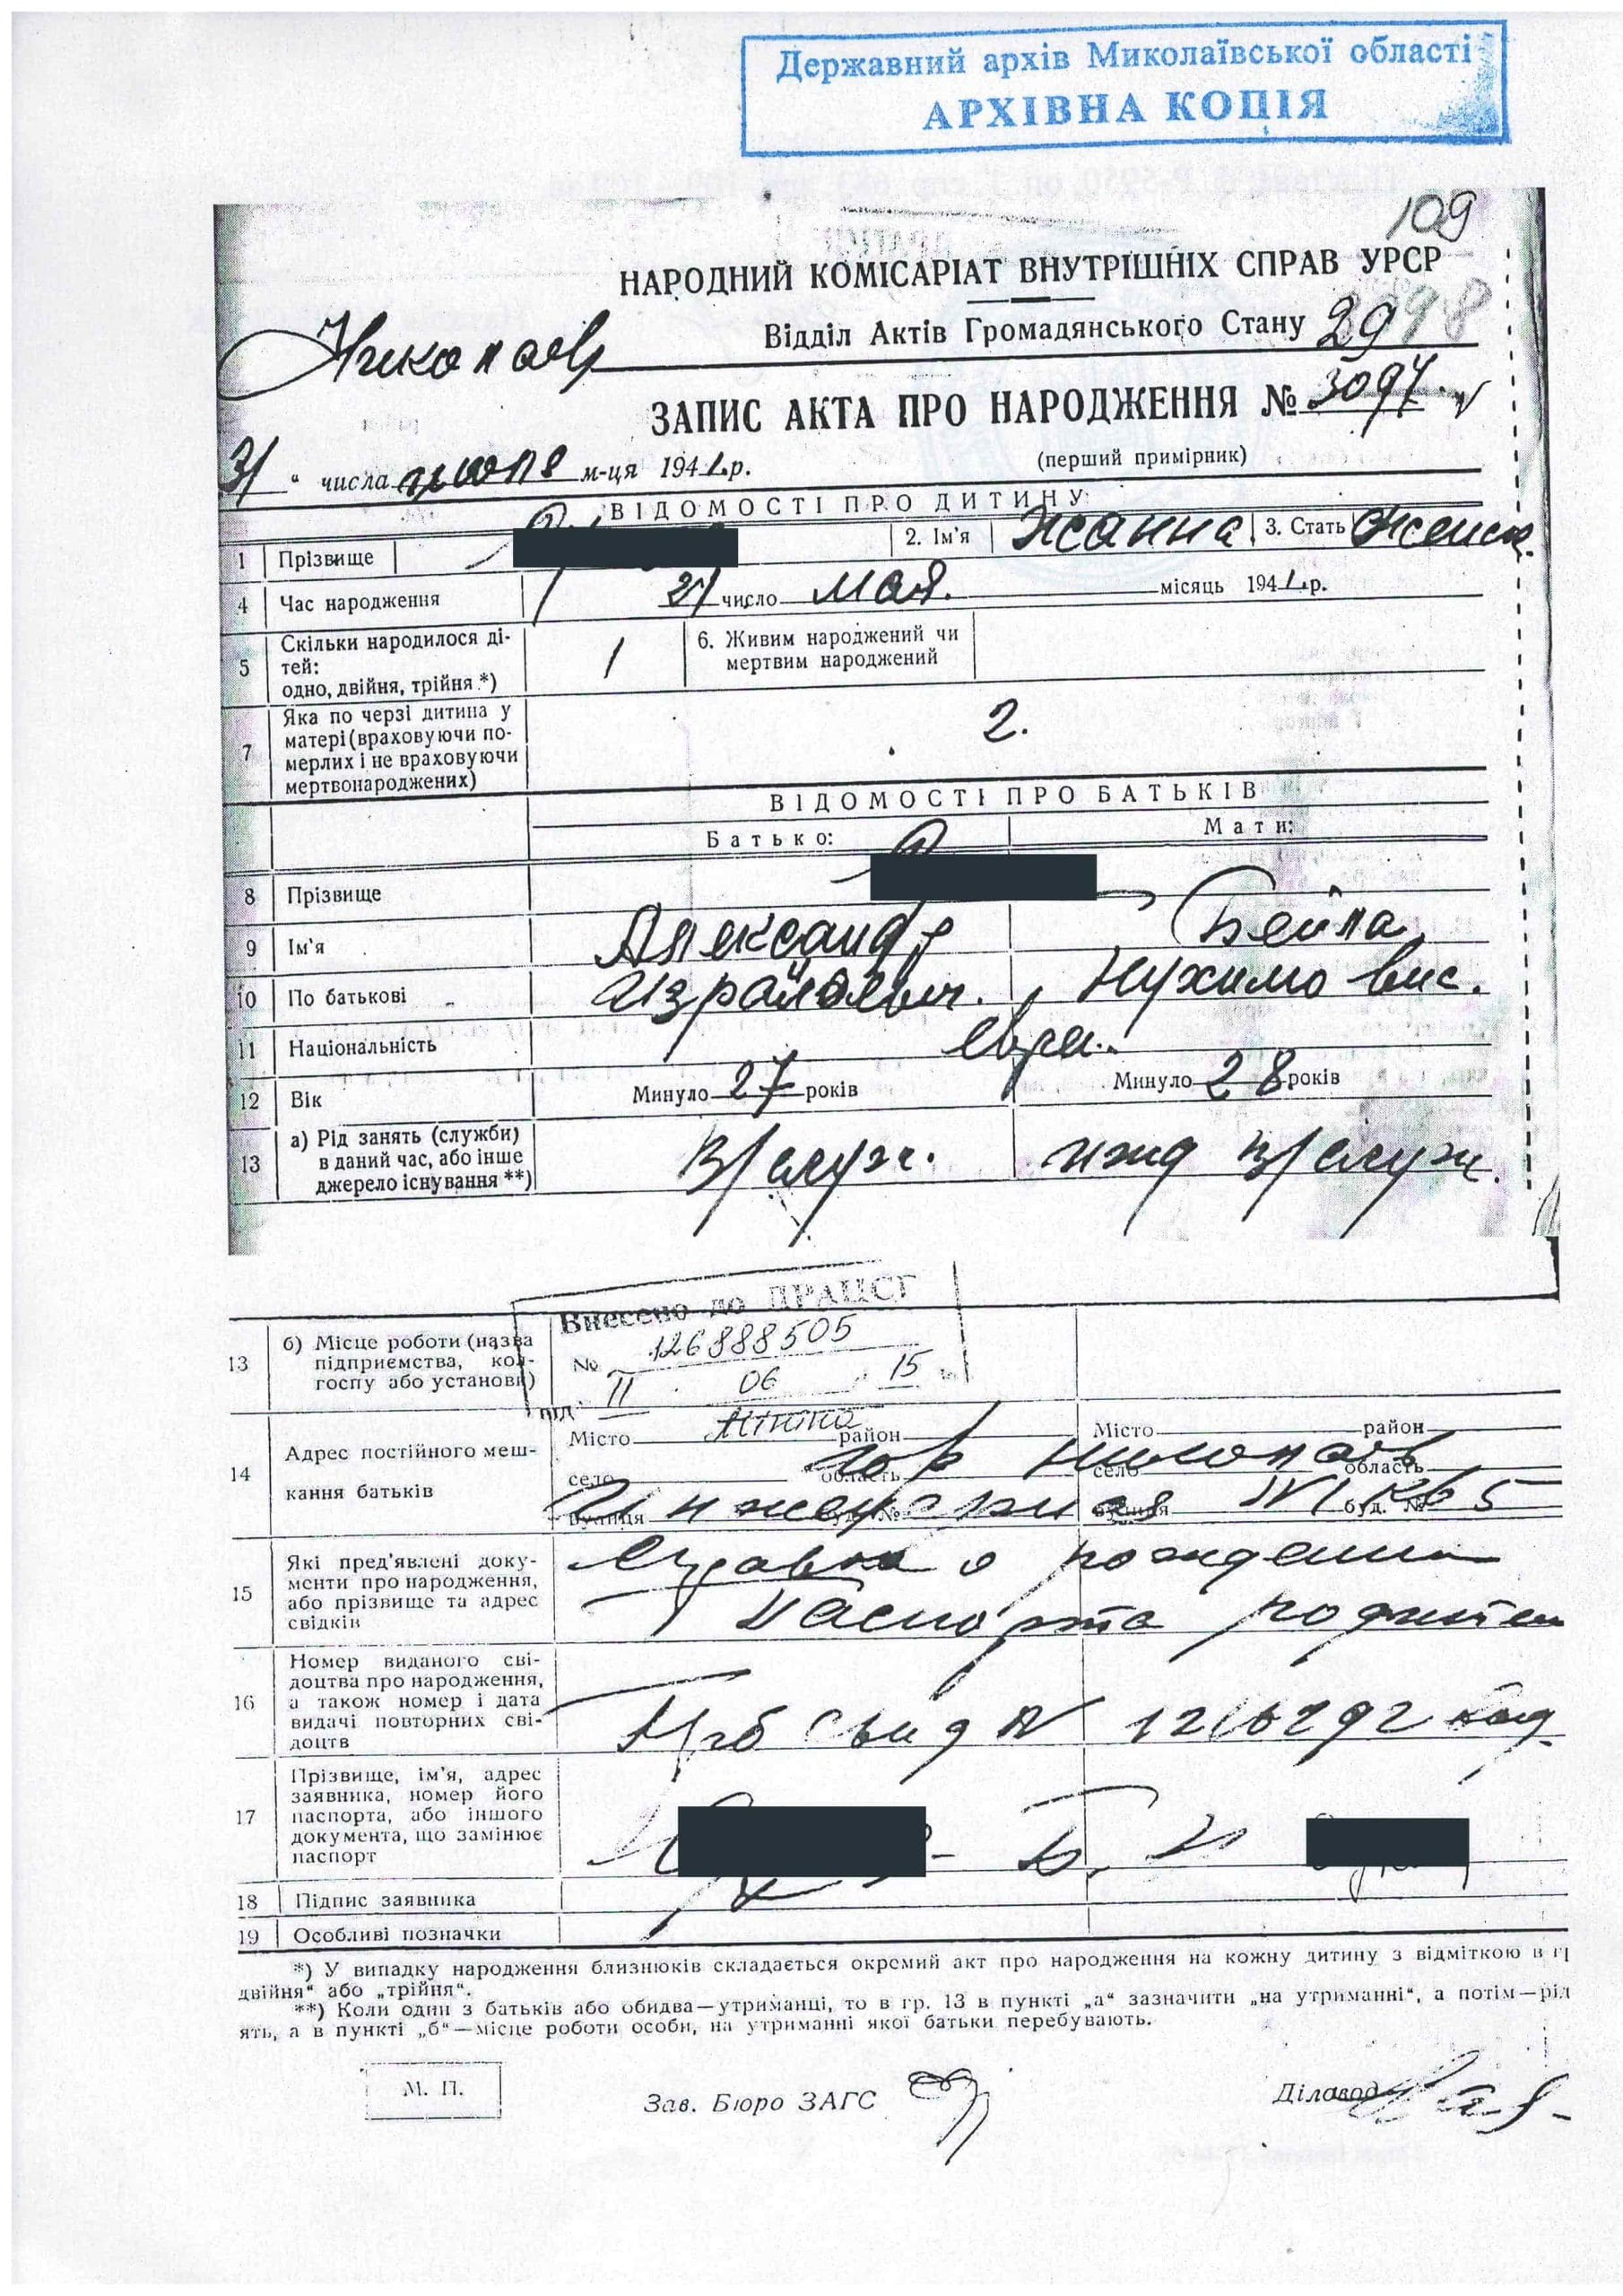 Державний архів Миколаївської області
АРХІВНА КОПІЯ
109
НАРОДНИЙ КОМІСАРІАТ ВНУТРІШНІХ СПРАВ УРСР
Відділ Актів Громадянського Стану 2998
Николаев
ЗАПИС АКТА ПРО НАРОДЖЕННЯ № 3094
(перший примірник)
31 " числа июля м-ця 1941 р.
ВІДОМОСТІ ПРО ДИТИНУ:
1 Прізвище 2. Ім'я Жанна 3. Стать Женск.
4 Час народження 21 число мая. місяць 1941 р.
5 Скільки народилося ді-
тей:
одно, двійня, трійня *) 1 6. Живим народжений чи
мертвим народжений
7 Яка по черзі дитина у
матері (враховуючи по-
мерлих і не враховуючи
мертвонароджених) 2.
ВІДОМОСТІ ПРО БАТЬКІВ
Батько: Мати:
8 Прізвище
9 Ім'я Александр Бейла
10 По батькові Израйлевич. Нухимовис.
11 Національність евреи.
12 Вік Минуло 27 років Минуло 28 років
13 а) Рід занять (служби)
в даний час, або інше
джерело існування **) В/служ. ижд в/служ.
Внесено до ДРАЦСГ
№ 126888505
від 11 06 15
13 б) Місце роботи (назва
підприємства, кол-
госпу або установи)
14 Адрес постійного меш-
кання батьків
Місто район Місто район
село область село область
гор Николаев
вулиця буд. № вулиця буд. №
Инженерная N1 кв 5
15 Які пред'явлені доку-
менти про народження,
або прізвище та адрес
свідків
Справка о рождении
Паспорта родител
16 Номер виданого сві-
доцтва про народження,
а також номер і дата
видачі повторних сві-
доцтв
свид N
17 Прізвище, ім'я, адрес
заявника, номер його
паспорта, або іншого
документа, що замінює
паспорт
Б. Н
18 Підпис заявника
19 Особливі позначки
*) У випадку народження близнюків складається окремий акт про народження на кожну дитину з відміткою в гр
двійня" або „трійня".
**) Коли один з батьків або обидва—утриманці, то в гр. 13 в пункті „а" зазначити „на утриманні", а потім—рід
ять, а в пункті „б"—місце роботи особи, на утриманні якої батьки перебувають.
М. П.
Зав. Бюро ЗАГС
Діловод